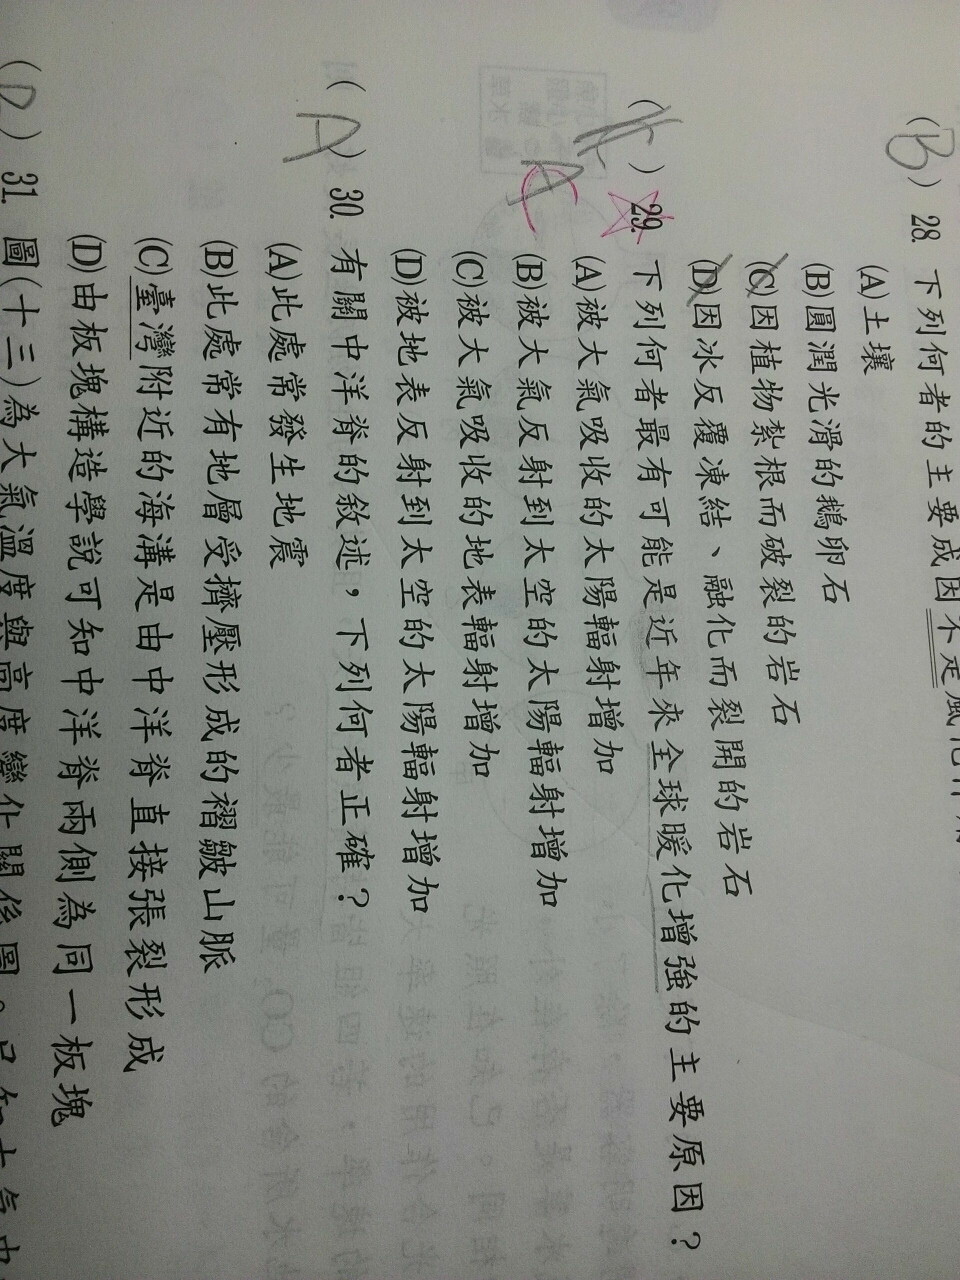 (B) 28. 下列何者的主要成因不是風化作用
(A)土壤
(B)圓潤光滑的鵝卵石
(C)因植物紮根而破裂的岩石
(D)因冰反覆凍結、融化而裂開的岩石
( ) 29. 下列何者最有可能是近年來全球暖化增強的主要原因？
A
(A)被大氣吸收的太陽輻射增加
(B)被大氣反射到太空的太陽輻射增加
(C)被大氣吸收的地表輻射增加
(D)被地表反射到太空的太陽輻射增加
(A) 30. 有關中洋脊的敘述，下列何者正確？
(A)此處常發生地震
(B)此處常有地層受擠壓形成的褶皺山脈
(C)臺灣附近的海溝是由中洋脊直接張裂形成
(D)由板塊構造學說可知中洋脊兩側為同一板塊
(D) 31. 圖(十三)為大氣溫度與高度變化關係圖。已知大氣中